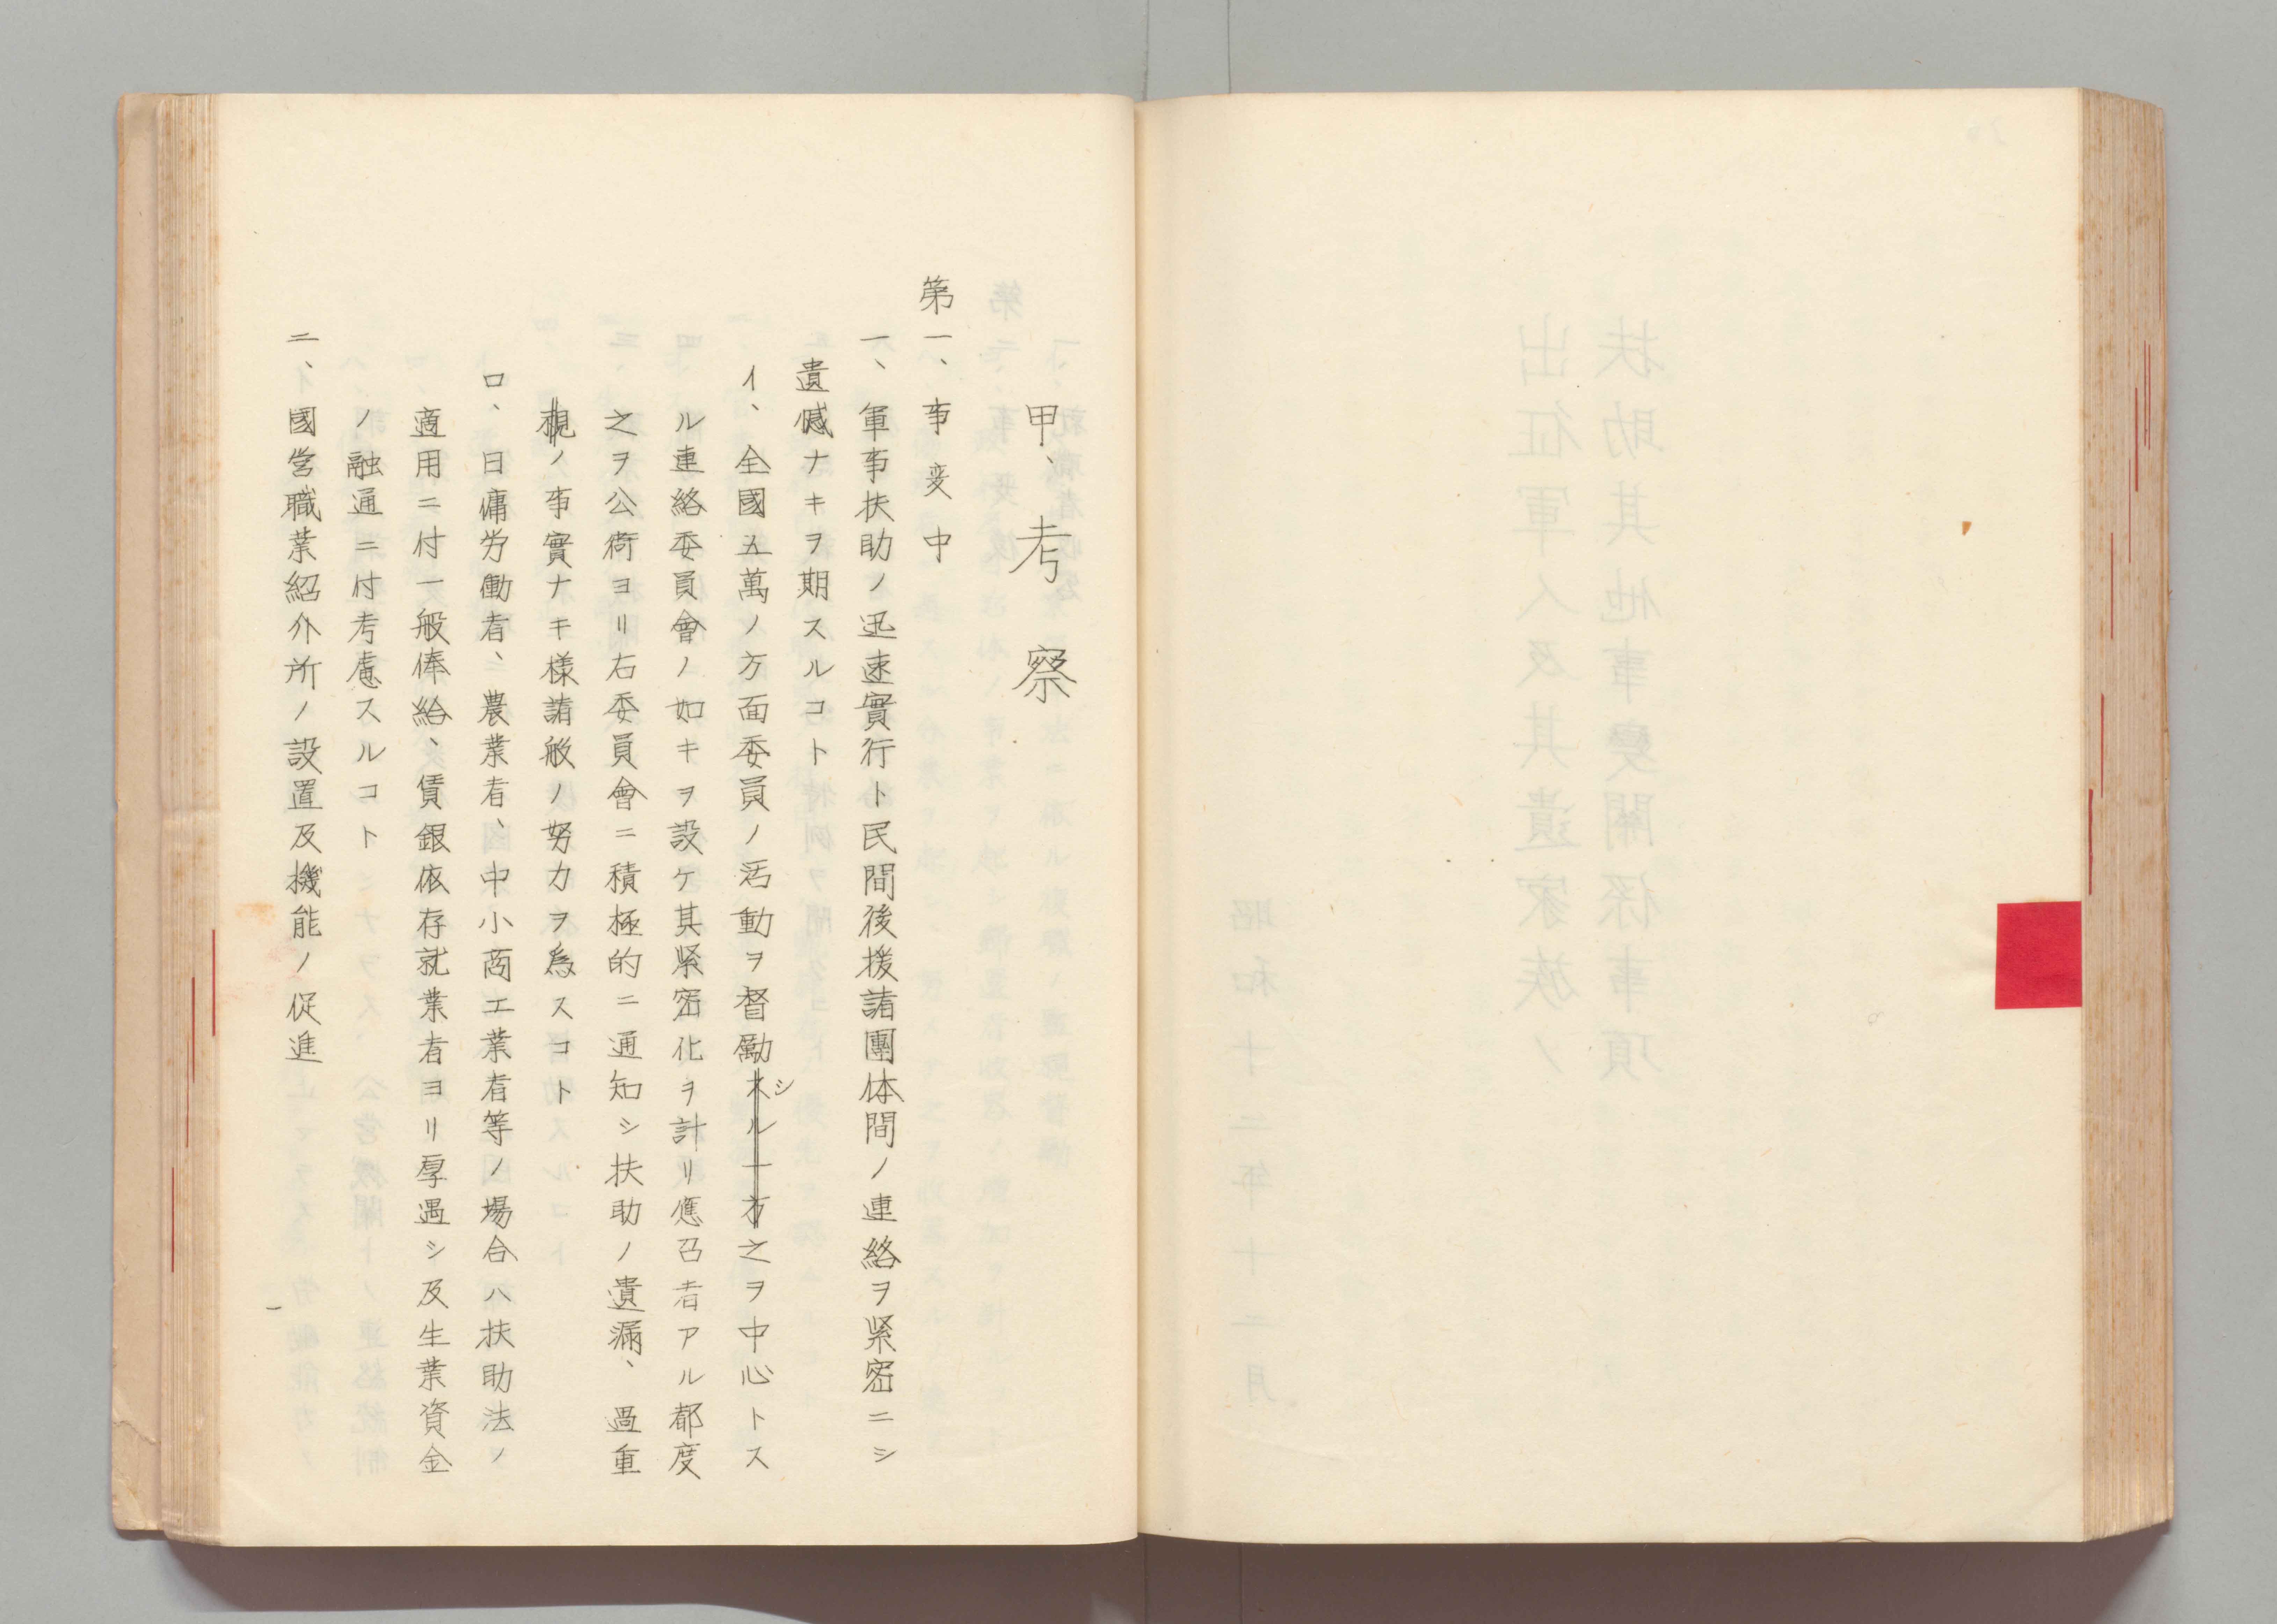 甲、考察
第一、事変中
一、軍事扶助ノ迅速實行ト民間後援諸團体間ノ連絡ヲ緊密ニシ
遺憾ナキヲ期スルコト
イ、全國五萬ノ方面委員ノ活動ヲ督励シスル一方之ヲ中心トス
ル連絡委員會ノ如キヲ設ケ其緊密化ヲ計リ應召者アル都度
之ヲ公衙ヨリ右委員會ニ積極的ニ通知シ扶助ノ遺漏、過重
視ノ事實ナキ様諸般ノ努力ヲ為スコト
ロ、日傭労働者、農業者、中小商工業者等ノ場合ハ扶助法ノ
適用ニ付一般俸給、賃銀依存就業者ヨリ厚遇シ及生業資金
ノ融通ニ付考慮スルコト
二、國営職業紹介所ノ設置及機能ノ促進
一